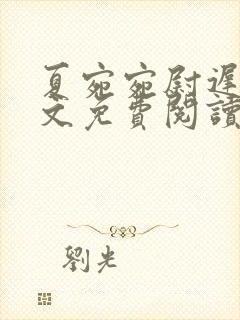 夏宛宛尉遲
文免費閱讀
劉光